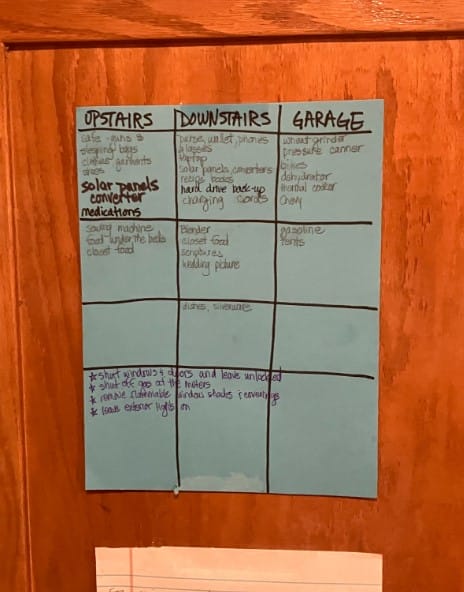 UPSTAIRS
safe - guns &
sleeping bags
clothes garments
shoes
solar panels
converter
medications
sewing machine
food under the beds
closet food
DOWNSTAIRS
purse, wallet, phones
glasses
laptop
solar panels, converters
recipe books
hard drive back-up
charging cords
Blender
closet food
scriptures
wedding picture
dishes, silverware
GARAGE
wheat grinder
pressure canner
bikes
dehydrator
thermal cooker
Chevy
gasoline
tents
* shut windows & doors and leave unlocked
* shut off gas at the meters
* remove flammable window shades & coverings
* leave exterior lights on